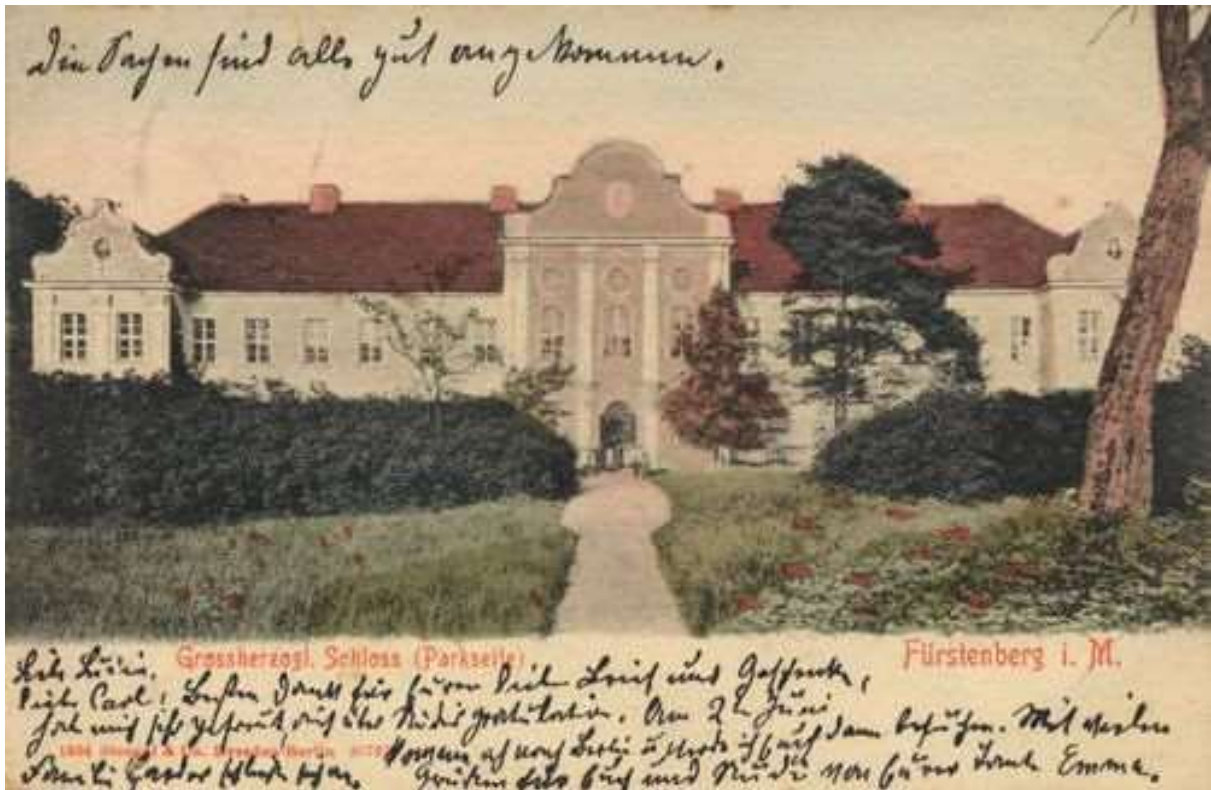 Die Sachen sind alle gut angekommen.
Grossherzogl. Schloss (Parkseite)
Fürstenberg i. M.
Carl, Besten Dank für Euren Brief und Geschenke,
hat mich sehr gefreut, auch über gratulation. Am 2ten Juni
komme ich nach Berlin u. werde ich Euch dann besuchen. Mit vielen
Grüßen für Euch und von Eurer Tante Emma.